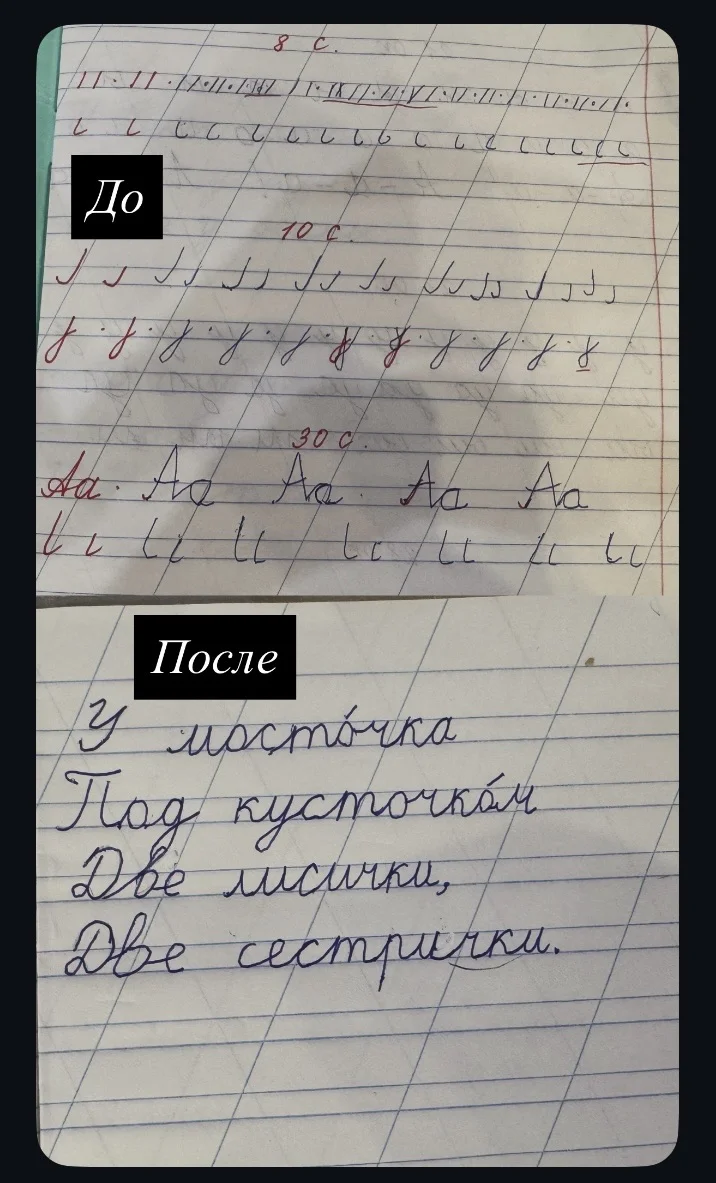 8 с.
До
10 с.
30 с.
Аа Аа Аа Аа Аа
После
У мосто́чка
Под кусточко́м
Две лисички,
Две сестрички.